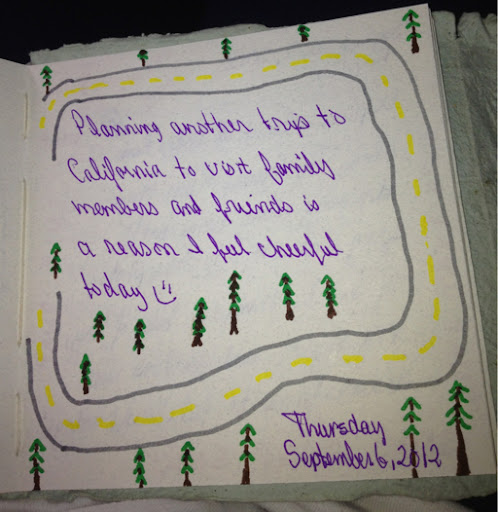 Planning another trip to
California to visit family
members and friends is
a reason I feel cheerful
today :)
Thursday
September 6, 2012